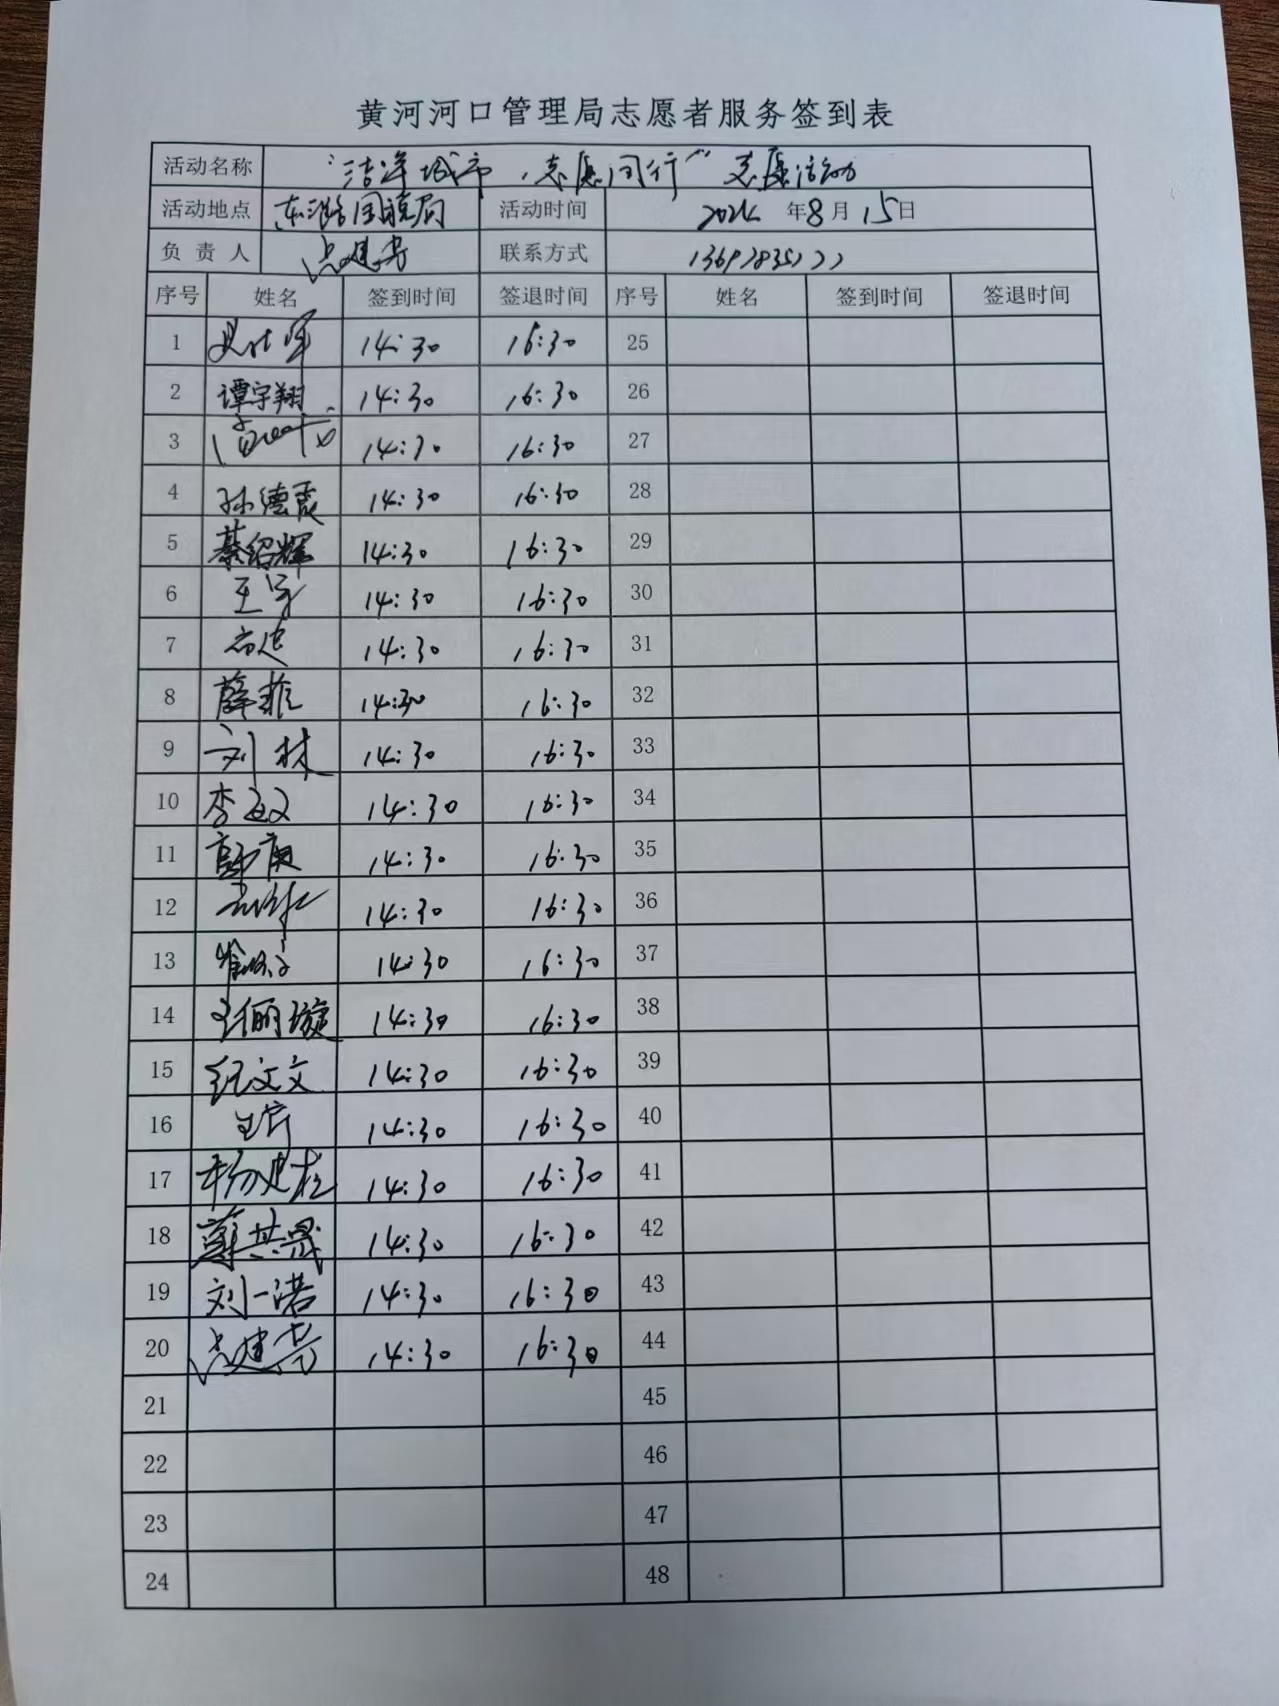 黄河河口管理局志愿者服务签到表
活动名称 “洁净城市,志愿同行”志愿活动
活动地点 活动时间 2024年8月15日
负责人 联系方式
序号 姓名 签到时间 签退时间 序号 姓名 签到时间 签退时间
1 14:30 16:30 25
2 谭宇翔 14:30 16:30 26
3 14:30 16:30 27
4 孙德霞 14:30 16:30 28
5 綦绍辉 14:30 16:30 29
6 王宇 14:30 16:30 30
7 14:30 16:30 31
8 薛菲 14:30 16:30 32
9 刘林 14:30 16:30 33
10 李敏 14:30 16:30 34
11 14:30 16:30 35
12 14:30 16:30 36
13 14:30 16:30 37
14 14:30 16:30 38
15 纪文文 14:30 16:30 39
16 14:30 16:30 40
17 14:30 16:30 41
18 14:30 16:30 42
19 刘一诺 14:30 16:30 43
20 14:30 16:30 44
21 45
22 46
23 47
24 48